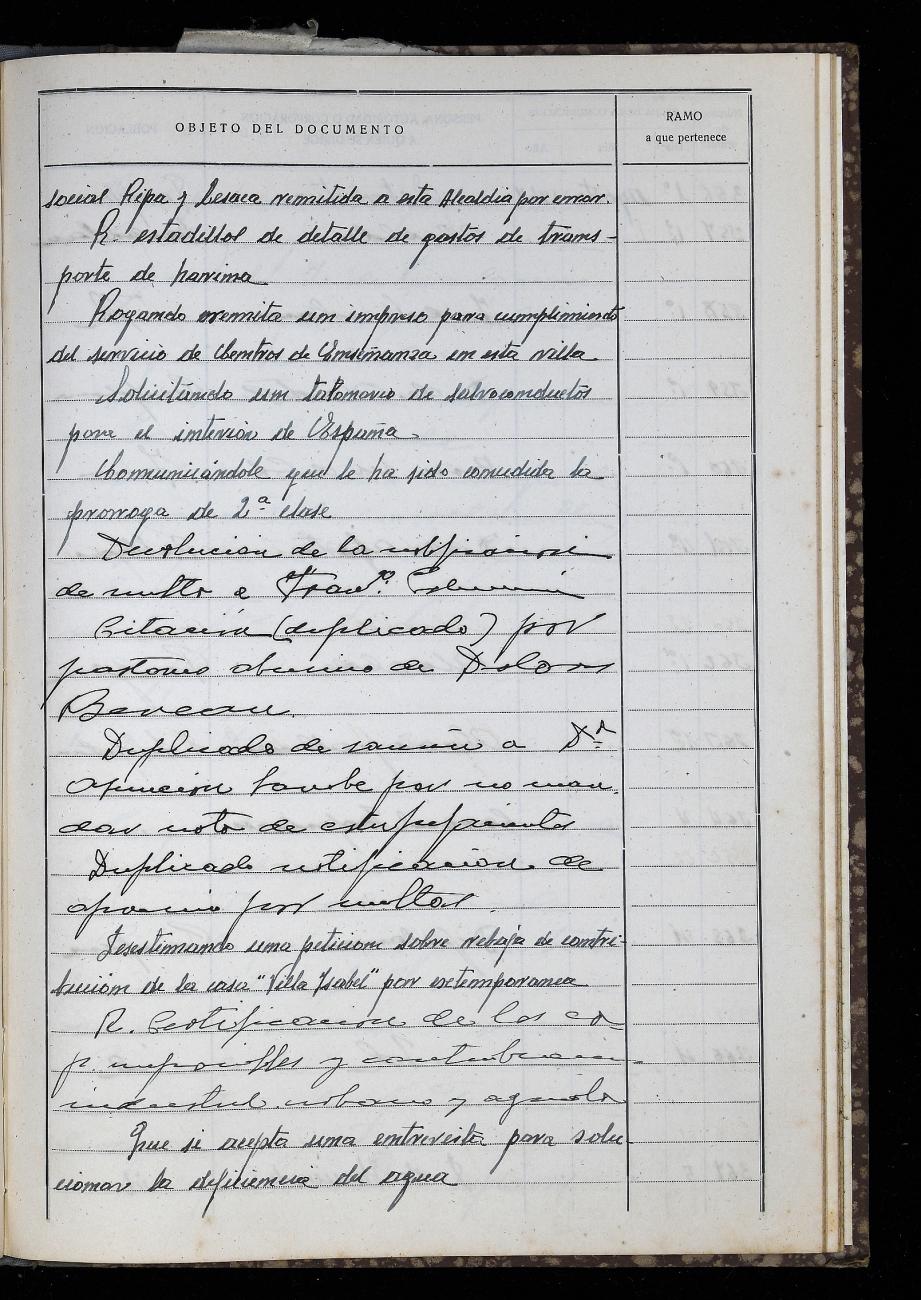 OBJETO DEL DOCUMENTO
RAMO
a que pertenece
social Ripa y Lesaca remitida a esta Alcaldia por error.
R. estadillos de detalle de gastos de trans-
porte de harina
Rogando remita un impreso para cumplimiento
del servicio de Centros de Enseñanza en esta villa
Solicitando un talonario de salvoconductos
para el interior de España.
Comunicándole que le ha sido concedida la
prorroga de 2ª clase
Devolucion de la notificacion
de multa a Franco.
Citación (duplicado) por
pastoreo abusivo de Dolores
Duplicado de sancion a Dª
Asuncion por no man
dar nota de estupefacientes
Duplicado notificacion de
apremio por multas
Desestimando una peticion sobre rebaja de contri-
bución de la casa "Villa Isabel" por extemporanea
R. Certificacion de los
y contribucion
industrial urbana y
Que si acepta una entrevista para solu-
cionar la deficiencia del agua